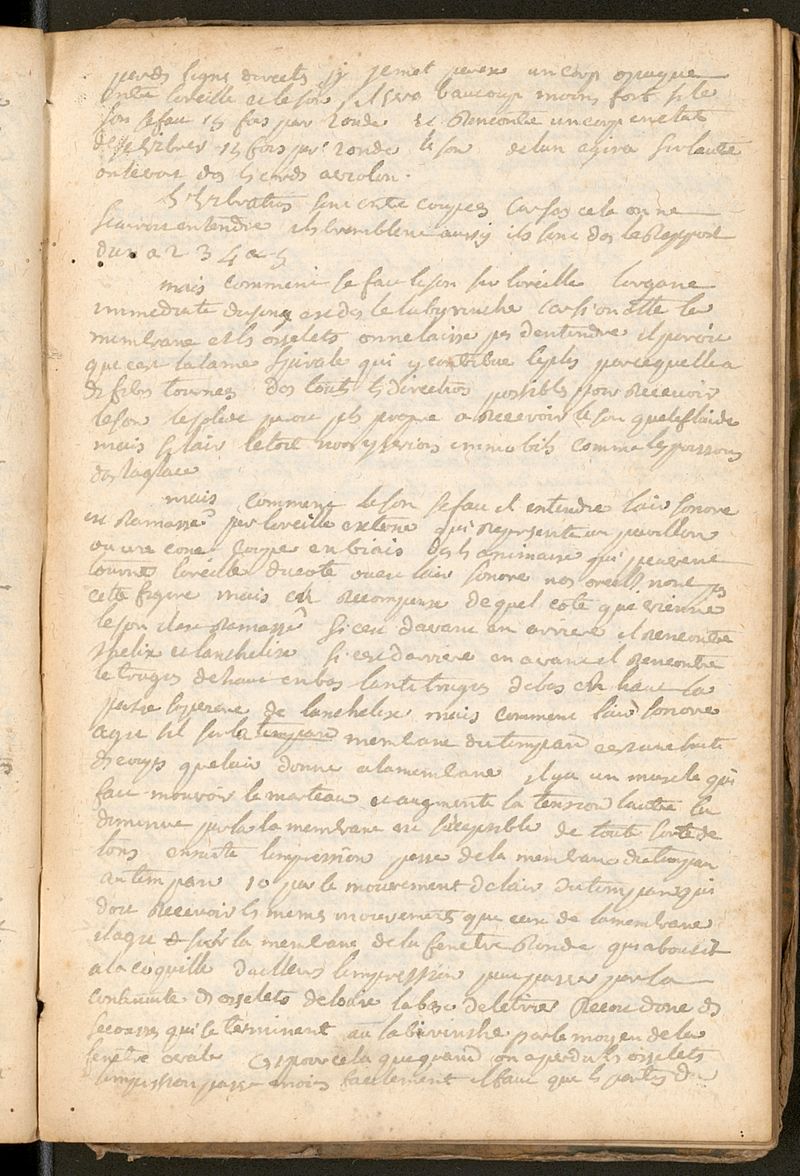 lignes directs si je met un corp opaque
entre loreille et le son il sera baucoup moins fort si le
son se fait 15 fois par 2onde et Rencontre un corp en etat
de 15 fois par 2onde le son de lun agira sur lautre
on le voit dans les cordes a violon.
les vibrations sont entre coupees car sans cela on ne
scauroit entendre ils tremblent aussy ils sont dans le Rapport
dun a 2 3 4 a 5
mais comment se fait le son sur loreille lorgane
immediate du son est dans le labyrinthe car si on otte la
membrane et les osselets on ne laisse pas dentendre il paroit
que cest la lame spirale qui y contribue le plus parcequelle a
des fibres tournees dans touts les directions possibles pour Recevoir
le son le solide paroit plus propre a Recevoir le son que le fluide
mais si lair letoit nous y serions immobils comme les poissons
dans la glace
mais comment le son se fait il entendre lair sonore
est Ramassé par loreille externe qui Represente un pavillon
ou une cone coupé en biais dans les animaux qui peuvent
tourner loreille du coté ou est lair sonore nos oreilles nont pas
cette figure mais en Recompense de quel coté que vienne
le son il est Ramassé si cest davant en arriere il Rencontre
lhelix et lanthelix si cest darriere en avant il Rencontre
le tragus de haut en bas lantitragus de bas en haut la
partie superieure de lanthelix mais comment lair sonore
agit il sur la tempan membrane du tempan cest une suite
de coups que lair donne a la membrane il y a un muscle qui
fait mouvoir le marteau et augmente la tension lautre la
diminue par la la membrane est susceptible de toute sorte de
tons ensuite limpression passe de la membrane du tempan
au tempan 1o par le mouvement de lair du tempan qui
doit Recevoir les memes mouvements que ceux de la membrane
il agit sur la membrane de la fenetre Ronde qui aboutit
a la coquille dailleurs limpression peut passer par la
continuité des osselets de louie la base de letrier Recoit donc des
secousses qui se terminent au labirinthe par le moyen de la
fenetre ovale cest pour cela que quand on a perdu les osselets
limpression passe moins facilement il faut que les parties du